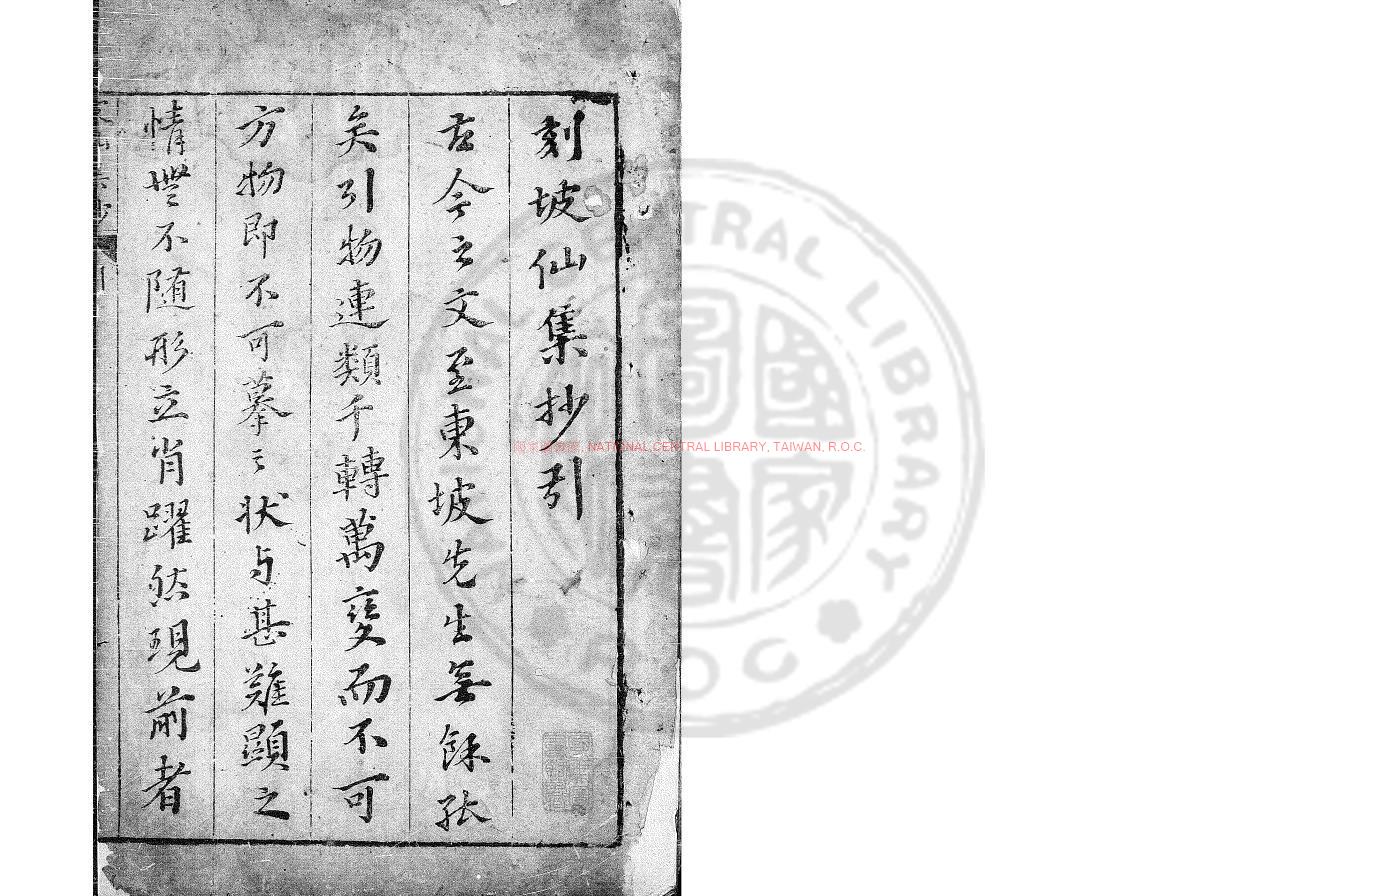 刻坡仙集抄引
古今之文至東坡先生無餘矣
矣引物連類千轉萬變而不可
方物即不可摹之状与甚難顯之
情無不随形立肖躍然現前者
國家圖書館, NATIONAL CENTRAL LIBRARY, TAIWAN, R.O.C.